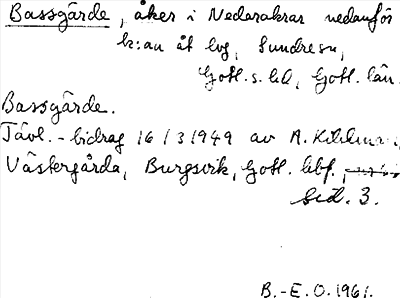 Bassgärde, åker i Nedarakrar nedanför
k:an åt lvg, Sundre sn,
Gotl. s. hd, Gotl. län.
Bassgärde.
Tävl.-bidrag 16/3 1949 av A.
Västergårda, Burgsvik, Gotl. hbf.,
sid. 3.
B.-E. O. 1961.